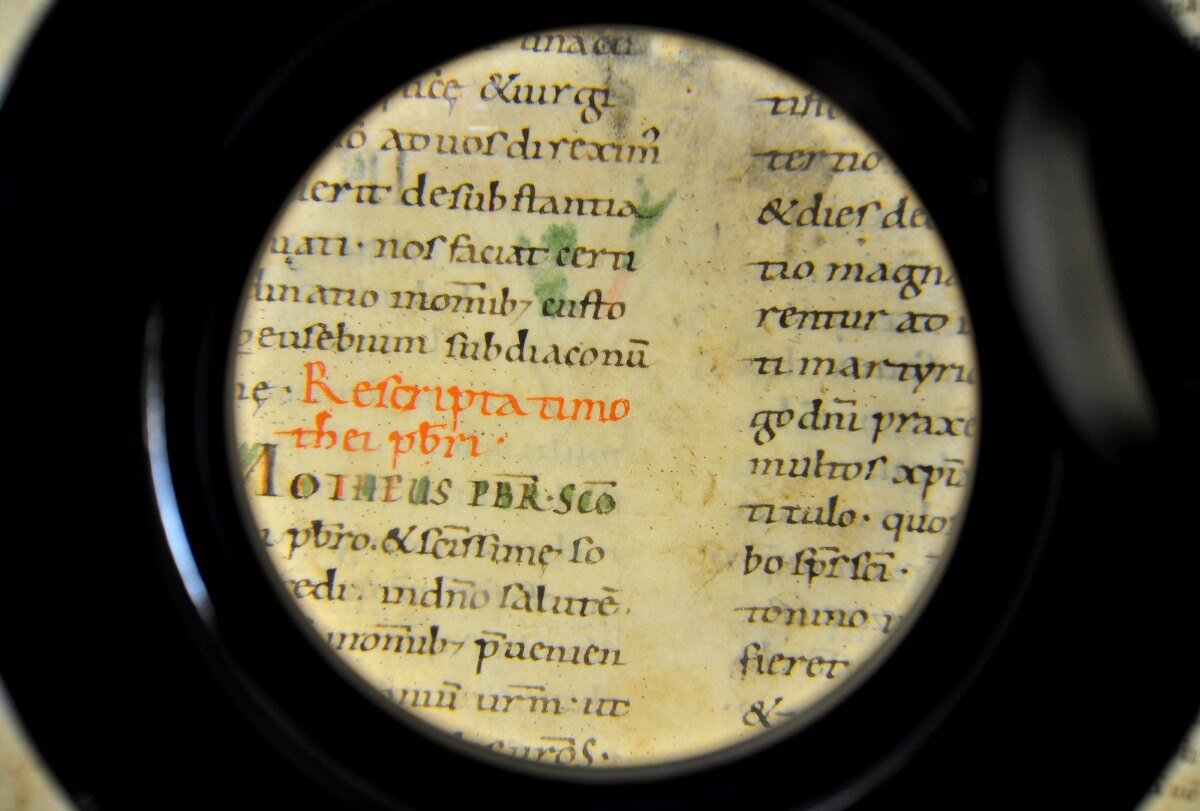 una cu
& iurgi
ad uos direxim̄
erit de substantia
uati· nos faciat certi
dinatio in om̄ib; custo
eusebium subdiaconū
Rescripta timo
thei pb̄ri·
MOTHEUS PBR̄·SCŌ
pb̄ro· & sc̄issime· so
edi· in dn̄o salutē·
in om̄ib; p̄uenien
ur̄m· ut
uros̄·
tertio
& dies de
tio magna
rentur ad
ti martyri
go dn̄i praxe
multos xp̄i
titulo· quo
bo sp̄s sc̄i·
tonino
fieret
&